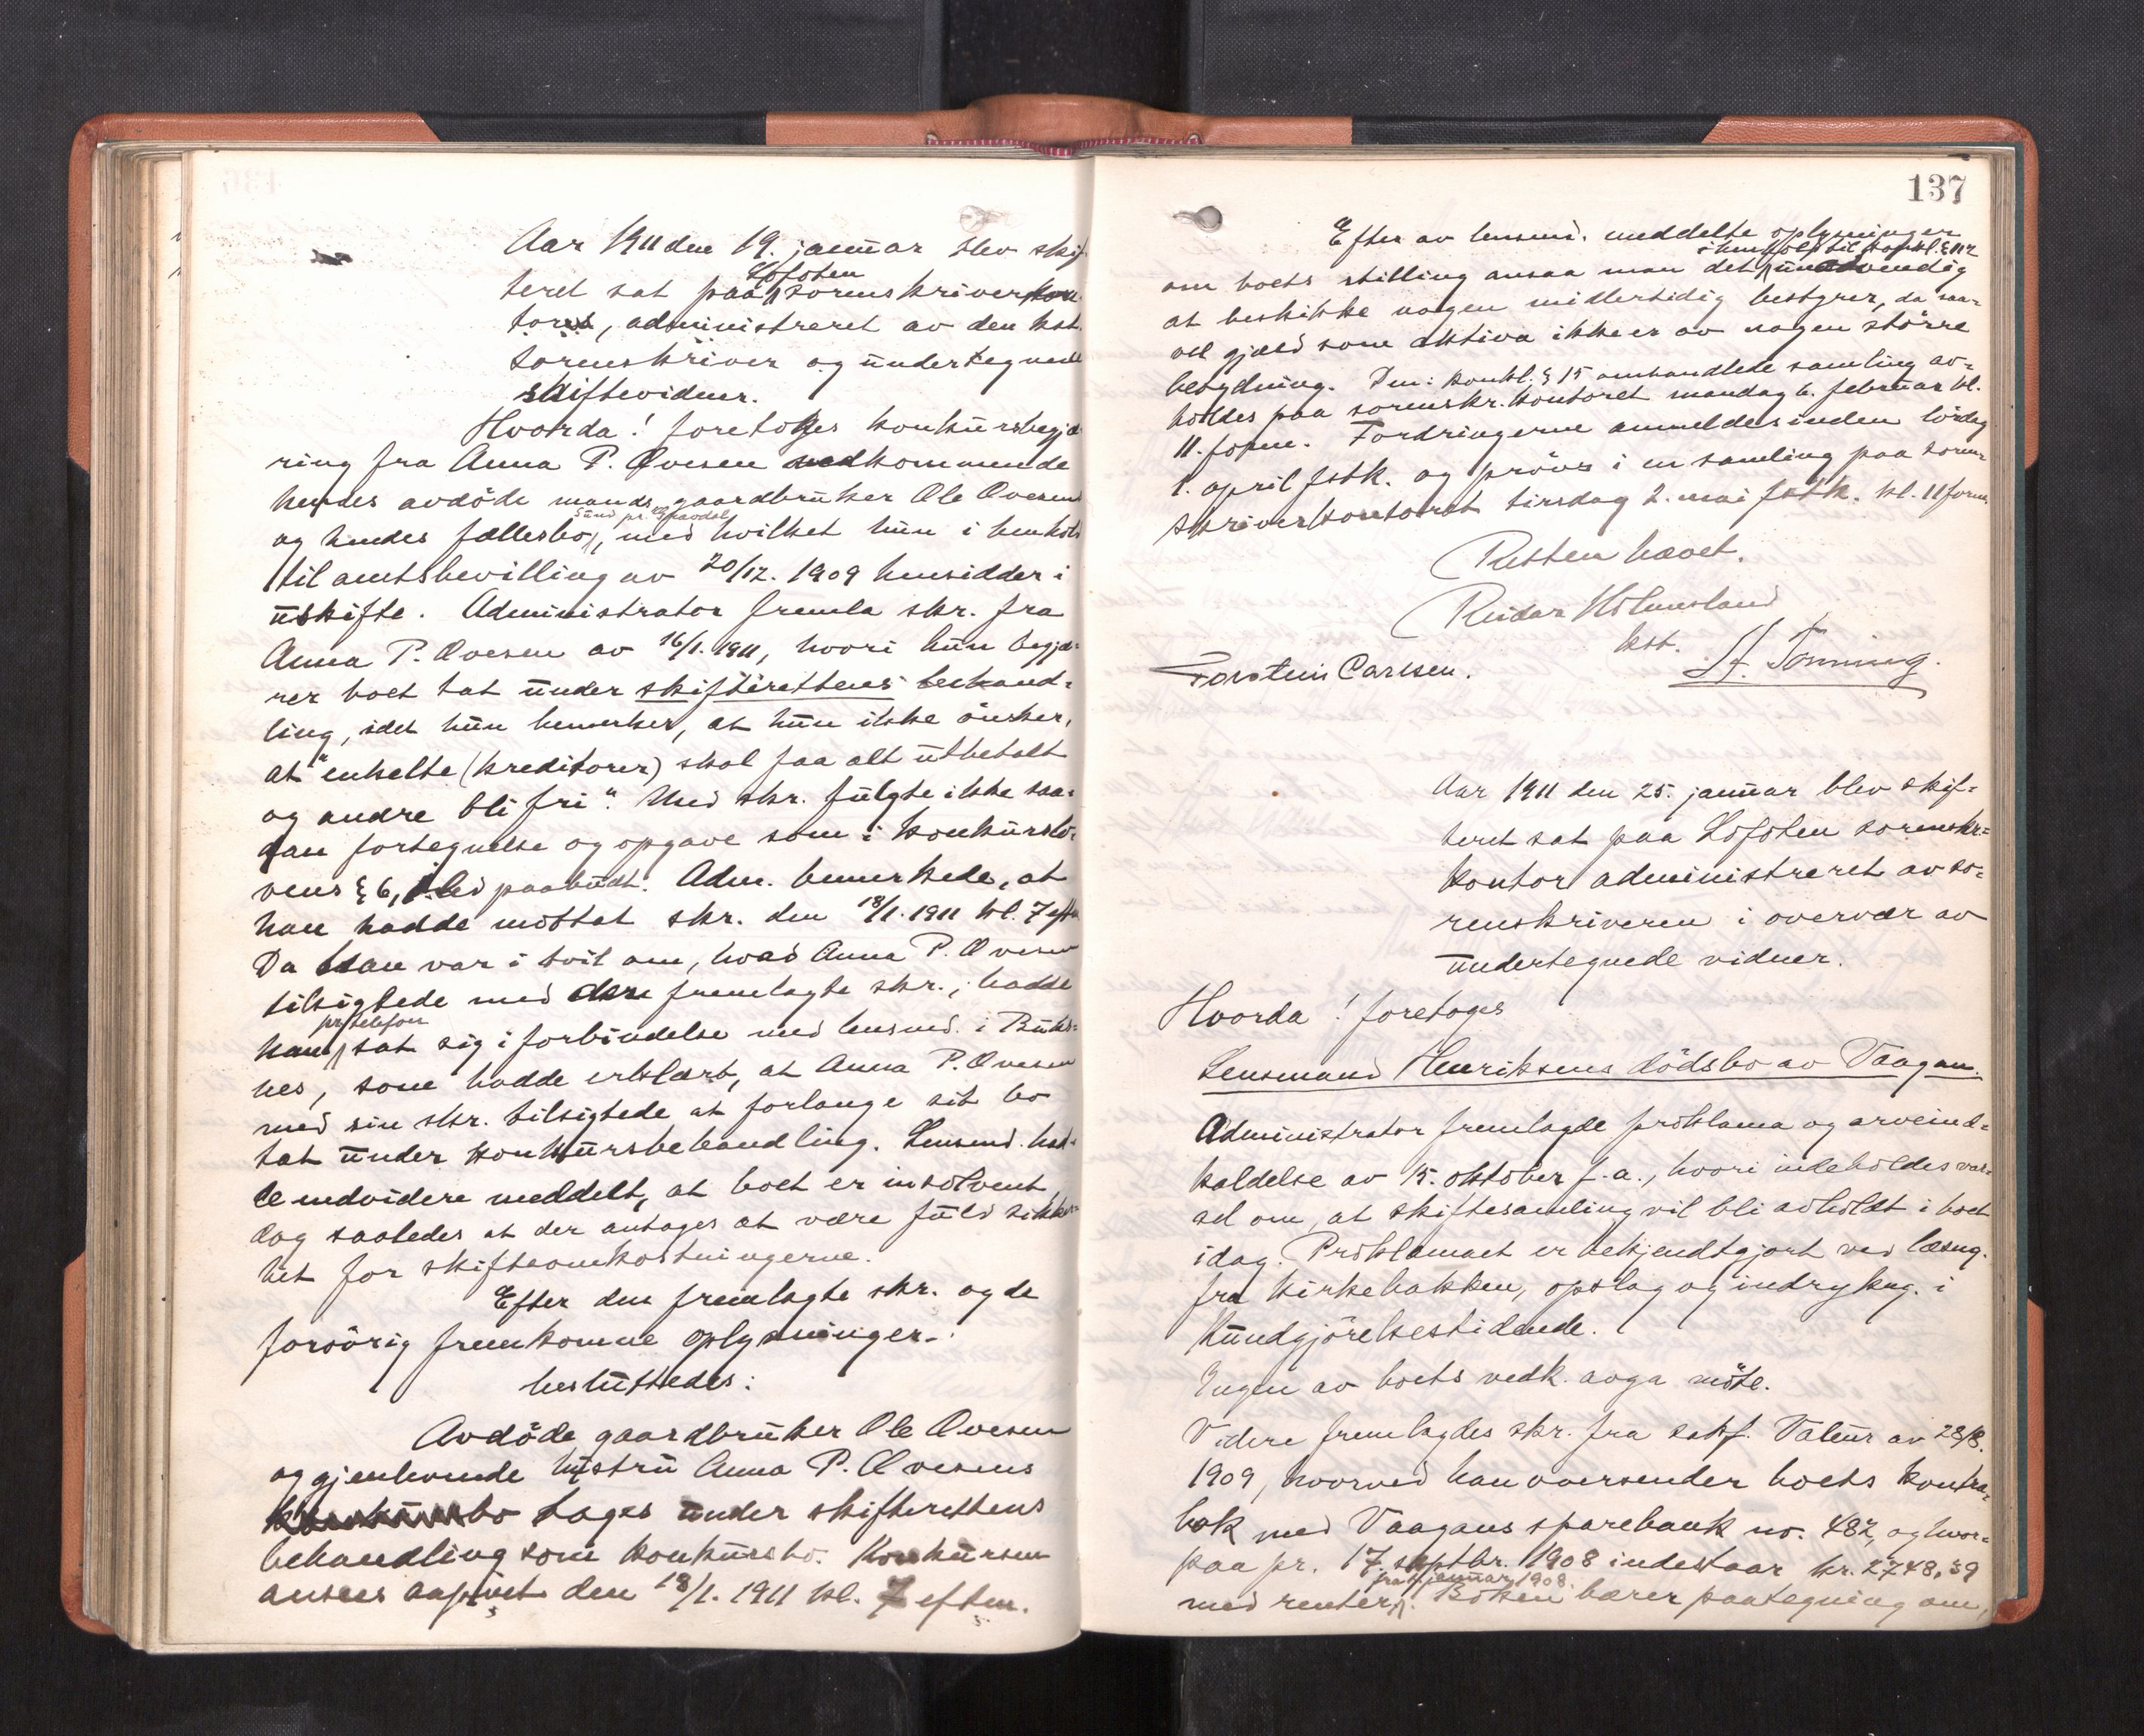 Aar 1911 den 19. januar blev skif-
teret sat paa Lofoten sorenskriverkon
tores, administreret av den kst.
sorenskriver og undertegnede
skiftevidner.
Hvorda! foretoges konkursbegjæ
ring fra Anna P. Ovesen vedkommende
hendes avdöde mands gaardbruker Ole Ovesens
og hendes fællesbo, med hvilket hun i henhold
til amtsbevilling av 20/12. 1909 hensidder i
uskifte. Administrator fremla skr. fra
Anna P. Ovesen av 16/1. 1911, hvori hun begjæ-
rer boet tat under skifterettens behand-
ling, idet hun bemerker, at hun ikke önsker,
at "enkelte (kreditorer) skal faa alt utbetalt
og andre bli fri". Med skr. fulgte ikke saa-
dan fortegnelse og opgave som i konkurslo-
vens § 6, 1. led paabudt. Adm. bemerkede, at
han hadde mottat skr. den 18/1. 1911 kl. 7 eftm
Da han var i tvil om, hvad Anna P. Ovesen
tilsigtede med den fremlagte skr., hadde
han pr. telefon sat sig i forbindelse med lensmd. i Buks-
nes, som hadde erklært, at Anna P. Ovesen
med sin skr. tilsigtede at forlange sit bo
tat under konkursbehandling. Lensmd. had-
de endvidere meddelt, at boet er insolvent,
dog saaledes at der antages at være fuld sikker-
het for skifteomkostningerne.
Efter den fremlagte skr. og de
forövrig fremkomne oplysninger
besluttedes:
Avdöde gaardbruker Ole Ovesen
og gjenlevende hustru Anna P. Ovesens
bo tages under skifterettens
behandling som konkursbo. Konkursen
ansees aapnet den 18/1. 1911 kl. 7 eftm.
137
Efter av lensmd. meddelte oplysninger
om boets stilling ansaa man det i henhold til konkl. § 112 unødvendig
at beskikke nogen midlertidig bestyrer, da saa-
vel gjæld som aktiva ikke er av nogen större
betydning. Den i konkl. § 15 omhandlede samling av-
holdes paa sorenskr.kontoret mandag 6. februar kl.
11. form. Fordringerne anmeldes inden lördag
1. april fstk. og pröves i en samling paa soren-
skriverkontoret tirsdag 2. mai fstk. kl. 11 form.
Retten hævet.
Reidar Holmesland
kst.
Torstein Carlsen.
H. Tönning.
Aar 1911 den 25. januar blev skif-
teret sat paa Lofoten sorenskr-
kontor administreret av so-
renskriveren i overvær av
undertegnede vidner.
Hvorda! foretoges
Lensmand Henriksens dödsbo av Vaagan.
Administrator fremlagde proklama og arveind-
kaldelse av 15. oktober f.a., hvori indeholdes var-
sel om, at skiftesamling vil bli avholdt i boet
idag. Proklamaet er bekjendtgjort ved læsng.
fra kirkebakken, opslag og indrykng. i
Kundgjörelsestidende.
Ingen av boets vedk. avga möte.
Videre fremlagdes skr. fra sakf. Valeur av 28/8.
1909, hvorved han oversender boets kontra-
bok med Vaagans sparebank no. 487, og hvor-
paa pr. 17. septbr. 1908 indestaar kr. 2748,39
med renter fra januar 1908. Boken bærer paategning om,